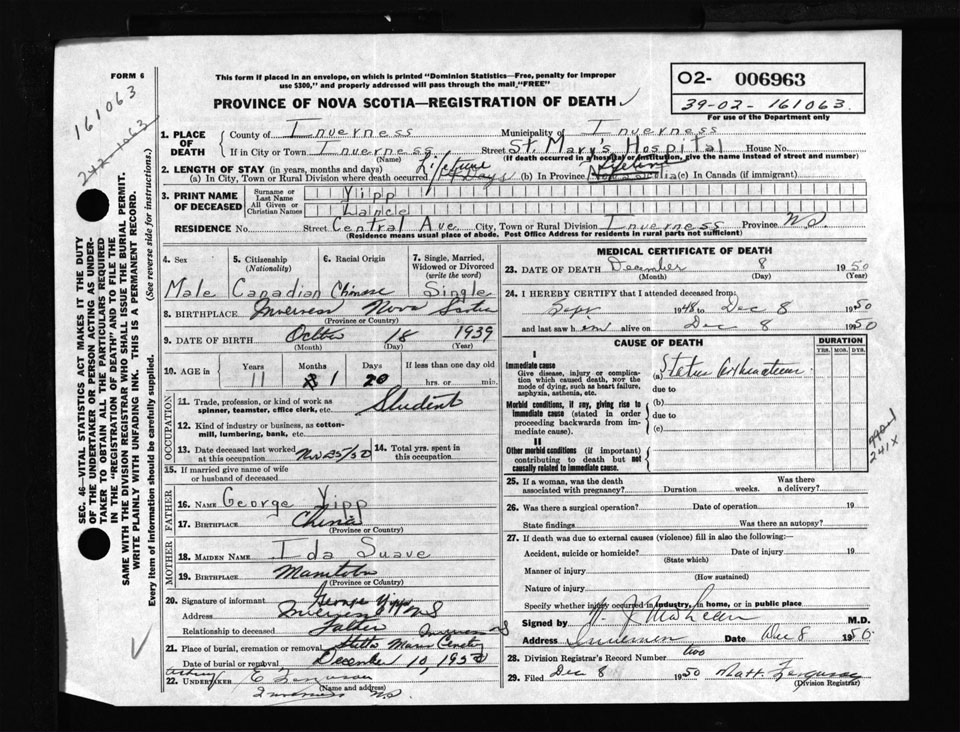 FORM 6
161063
242-1063
This form if placed in an envelope, on which is printed "Dominion Statistics—Free, penalty for improper
use $300," and properly addressed will pass through the mail "FREE"
PROVINCE OF NOVA SCOTIA—REGISTRATION OF DEATH
02- 006963
39-02- 161063.
For use of the Department only
1. PLACE OF DEATH County of Inverness Municipality of Inverness
If in City or Town Inverness (Name) Street St. Mary's Hospital House No.
(If death occurred in a hospital or institution, give the name instead of street and number)
2. LENGTH OF STAY (in years, months and days) Lifetime Lifetime
(a) In City, Town or Rural Division where death occurred Days (b) In Province Nova Scotia (c) In Canada (if immigrant)
3. PRINT NAME OF DECEASED
Surname or Last Name Yipp
All Given or Christian Names Lancle
RESIDENCE No. Street Central Ave City, Town or Rural Division Inverness Province N.S
(Residence means usual place of abode. Post Office Address for residents in rural parts not sufficient)
4. Sex Male
5. Citizenship (Nationality) Canadian
6. Racial Origin Chinese
7. Single, Married, Widowed or Divorced (write the word) Single
8. BIRTHPLACE Inverness Nova Scotia
(Province or Country)
9. DATE OF BIRTH 18 1939
(Month) (Day) (Year)
10. AGE in Years 11 Months 1 Days 20 If less than one day old hrs. or min.
OCCUPATION
11. Trade, profession, or kind of work as spinner, teamster, office clerk, etc. Student
12. Kind of industry or business, as cotton-mill, lumbering, bank, etc.
13. Date deceased last worked at this occupation Nov 25/50 14. Total yrs. spent in this occupation
15. If married give name of wife or husband of deceased
FATHER
16. NAME George Yipp
17. BIRTHPLACE China
(Province or Country)
MOTHER
18. MAIDEN NAME Ida Suave
19. BIRTHPLACE Manitoba
(Province or Country)
20. Signature of informant George Yipp
Address Inverness NS
Relationship to deceased Father
Inverness NS
21. Place of burial, cremation or removal Stella Maris Cemetery
Date of burial or removal December 10, 1950
22. UNDERTAKER
(Name and address)
Inverness N.S
MEDICAL CERTIFICATE OF DEATH
23. DATE OF DEATH December 8 1950
(Month) (Day) (Year)
24. I HEREBY CERTIFY that I attended deceased from
Sept 1948 to Dec 8 1950
and last saw him alive on Dec 8 1950
CAUSE OF DEATH
DURATION
YRS. MOS. DYS.
I
Immediate cause
Give disease, injury or complication which caused death, NOT the mode of dying, such as heart failure, asphyxia, asthenia, etc.
(a) Status Asthmaticus
due to
Morbid conditions, if any, giving rise to immediate cause (stated in order proceeding backwards from immediate cause).
(b)
due to
(c)
II
Other morbid conditions (if important) contributing to death but not causally related to immediate cause.
241X
25. If a woman, was the death associated with pregnancy? Duration weeks. Was there a delivery?
26. Was there a surgical operation? Date of operation 19
State findings Was there an autopsy?
27. If death was due to external causes (violence) fill in also the following:—
Accident, suicide or homicide? Date of injury 19
(State which)
Manner of injury
(How sustained)
Nature of injury
Specify whether injury occurred in industry, in home, or in public place
Signed by M.D.
Address Inverness Date Dec 8 1950.
28. Division Registrar's Record Number two
29. Filed Dec 8 1950
(Division Registrar)
SEC. 46—VITAL STATISTICS ACT MAKES IT THE DUTY
OF THE UNDERTAKER OR PERSON ACTING AS UNDER-
TAKER TO OBTAIN ALL THE PARTICULARS REQUIRED
IN THE "REGISTRATION OF DEATH" AND TO FILE THE
SAME WITH THE DIVISION REGISTRAR WHO SHALL ISSUE THE BURIAL PERMIT.
WRITE PLAINLY WITH UNFADING INK. THIS IS A PERMANENT RECORD.
Every item of information should be carefully supplied. (See reverse side for instructions.)